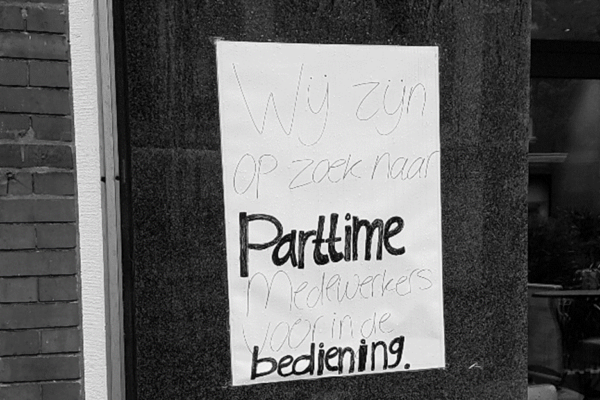 Wij zijn
op zoek naar
Parttime
Medewerkers
voor in de
bediening.